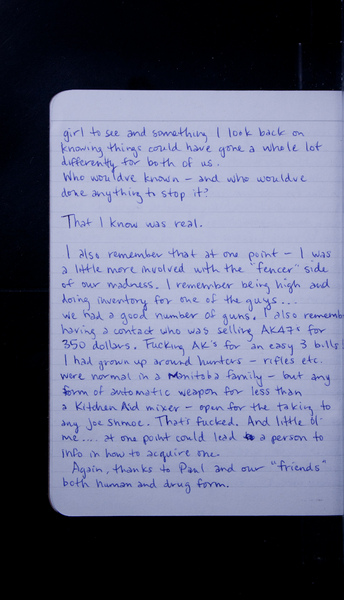 girl to see and something I look back on
knowing things could have gone a whole lot
differently for both of us.
Who would've known – and who would've
done anything to stop it?
That I know was real.
I also remember that at one point – I was
a little more involved with the "fencer" side
of our madness. I remember being high and
doing inventory for one of the guys...
we had a good number of guns. I also rememb
having a contact who was selling AK47s for
350 dollars. Fucking AK's for an easy 3 bills
I had grown up around hunters – rifles etc.
were normal in a Manitoba family – but any
form of automatic weapon for less than
a Kitchen Aid mixer – open for the taking to
any joe shmoe. That's fucked. And little ol'
me.... at one point could lead a person to
info in how to acquire one.
Again, thanks to Paul and our "friends"
both human and drug form.